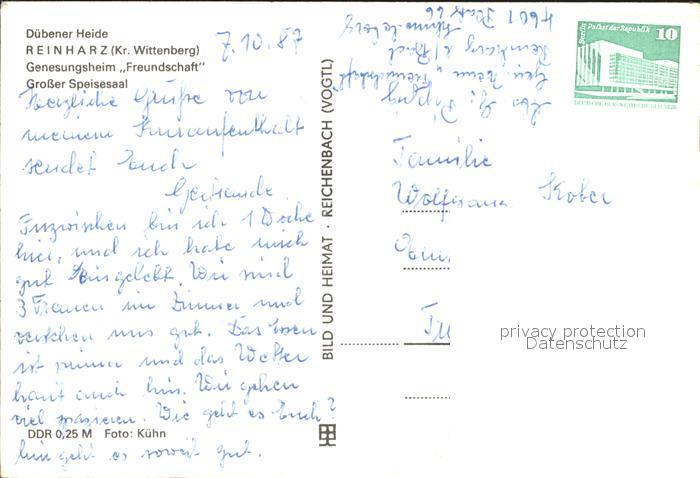 Dübener Heide
REINHARZ (Kr. Wittenberg)
Genesungsheim „Freundschaft"
Großer Speisesaal
7.10.87
Herzliche Grüße von
meinem Kuraufenthalt
sendet Euch
Gertraude
Inzwischen bin ich 1 Woche
hier, und ich habe mich
gut eingelebt. Wir sind
3 Frauen im Zimmer und
verstehen uns gut. Das Essen
ist prima und das Wetter
haut auch hin. Wir gehen
viel spazieren. Wie geht es Euch?
hier geht es soweit gut.
DDR 0,25 M Foto: Kühn
BILD UND HEIMAT · REICHENBACH (VOGTL)
Gen. Heim „Freundschaft"
Reinharz
Schmiedeberg
4601
Berlin, Palast der Republik 10
DEUTSCHE DEMOKRATISCHE REPUBLIK
Familie
Wolfgang Kober
privacy protection
Datenschutz